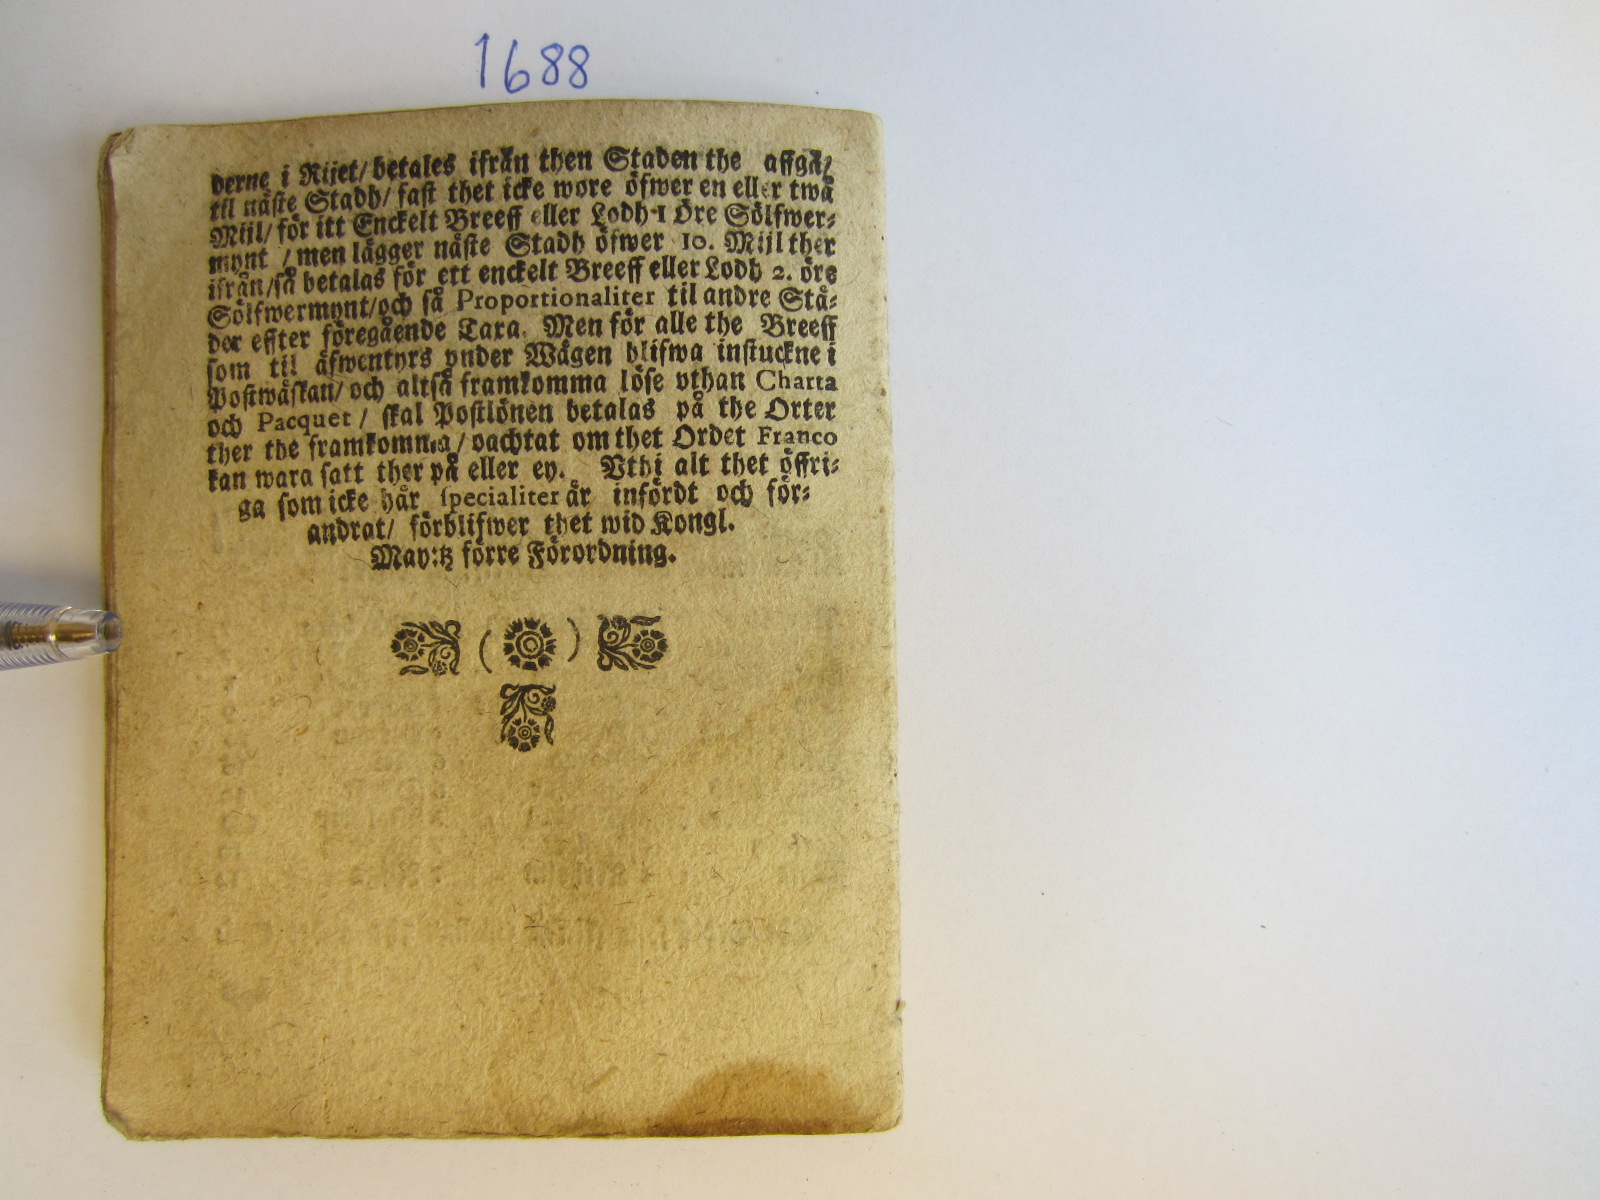 1688
derne i Rijet/ betales ifrån then Staden the affgå/
til näste Stadh/ fast thet icke wore öfwer en eller twå
Mijl/ för itt Enckelt Breeff eller Lodh 1 öre Sölfwer⸗
mynt / men lägger näste Stadh öfwer 10. Mijl ther
ifrån/så betalas för ett enckelt Breeff eller Lodh 2. öre
Sölfwermynt/och så Proportionaliter til andre Stä⸗
der effter föregående Taxa. Men för alle the Breeff
som til äfwentyrs vnder Wägen blifwa instuckne i
Postwäskan/ och altså framkomma löse vthan Charta
och Pacquet / skal Postlönen betalas på the Orter
ther the framkomma / oachtat om thet Ordet Franco
kan wara satt ther på eller ey. Vthi alt thet öffri⸗
ga som icke här specialiter är infördt och för⸗
andrat/ förblifwer thet wid Kongl.
May:tz förre Förordning.